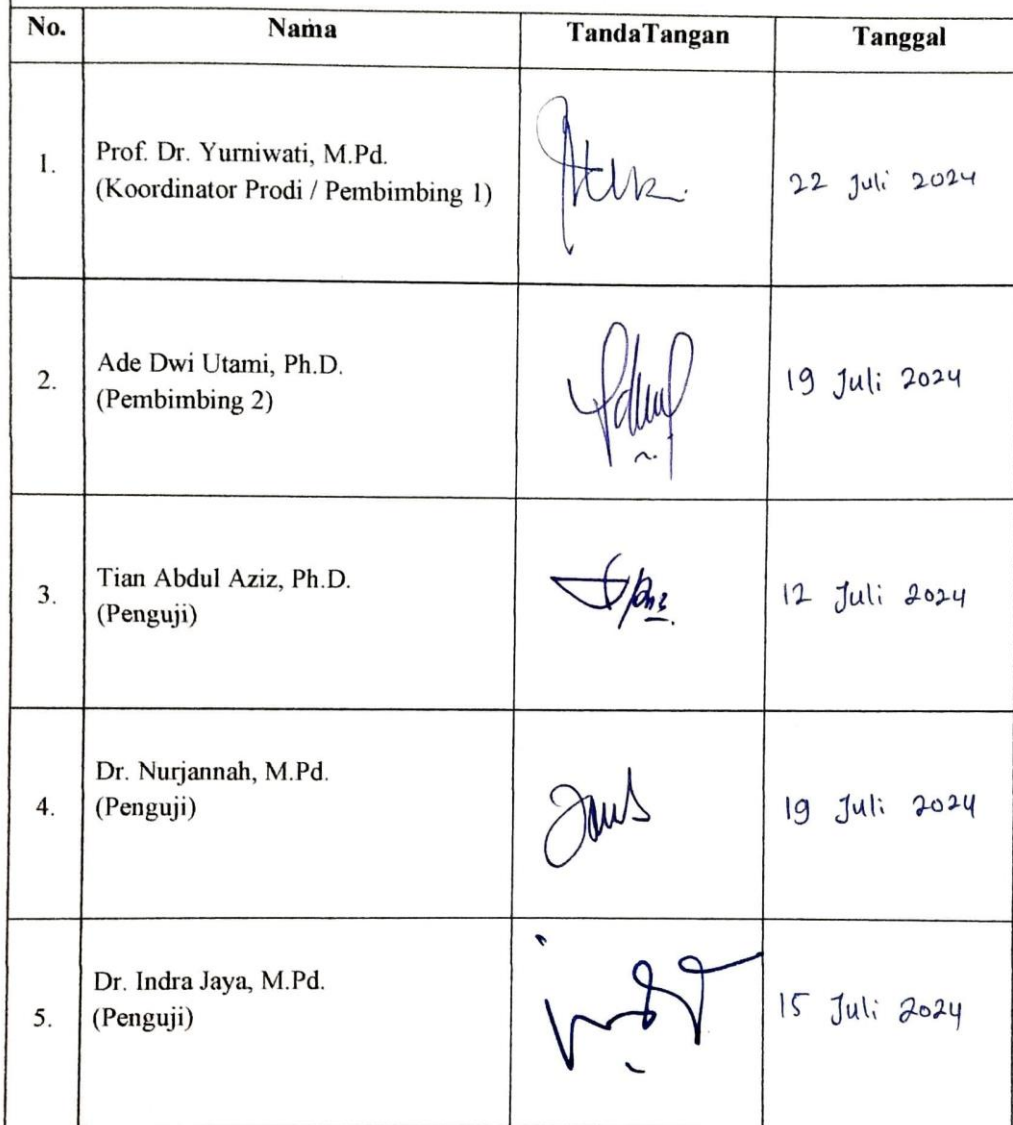 No. Nama TandaTangan Tanggal
1. Prof. Dr. Yurniwati, M.Pd.
(Koordinator Prodi / Pembimbing 1) 22 Juli 2024
2. Ade Dwi Utami, Ph.D.
(Pembimbing 2) 19 Juli 2024
3. Tian Abdul Aziz, Ph.D.
(Penguji) 12 Juli 2024
4. Dr. Nurjannah, M.Pd.
(Penguji) 19 Juli 2024
5. Dr. Indra Jaya, M.Pd.
(Penguji) 15 Juli 2024